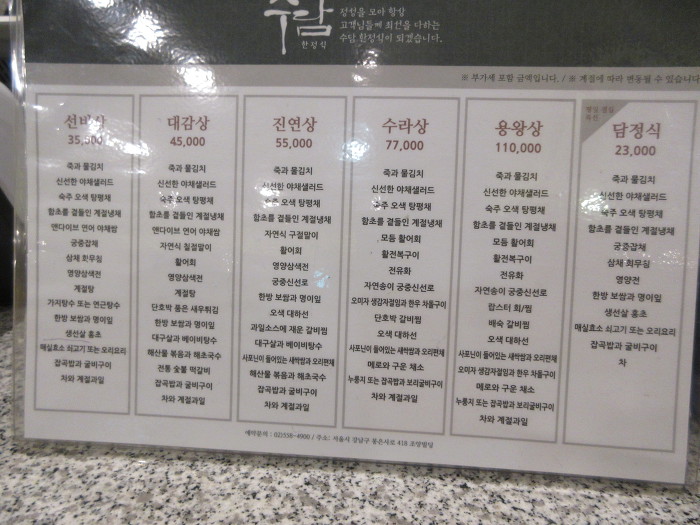 수담
한정식
정성을 모아 항상
고객님들께 최선을 다하는
수담 한정식이 되겠습니다.
※ 부가세 포함 금액입니다. / ※ 계절에 따라 변동될 수 있습니다
선비상
35,000
죽과 물김치
신선한 야채샐러드
숙주 오색 탕평채
함초를 곁들인 계절냉채
앤다이브 연어 야채쌈
궁중잡채
삼채 회무침
영양삼색전
계절탕
가지탕수 또는 연근탕수
한방 보쌈과 명이잎
생선살 홍초
매실효소 쇠고기 또는 오리요리
잡곡밥과 굴비구이
차와 계절과일
대감상
45,000
죽과 물김치
신선한 야채샐러드
숙주 오색 탕평채
함초를 곁들인 계절냉채
앤다이브 연어 야채쌈
자연식 칠절말이
활어회
영양삼색전
계절탕
단호박 품은 새우튀김
한방 보쌈과 명이잎
대구살과 베이비탕수
해산물 볶음과 해초국수
전통 숯불 떡갈비
잡곡밥과 굴비구이
차와 계절과일
진연상
55,000
죽과 물김치
신선한 야채샐러드
숙주 오색 탕평채
함초를 곁들인 계절냉채
자연식 구절말이
활어회
영양삼색전
궁중신선로
한방 보쌈과 명이잎
오색 대하선
과일소스에 재운 갈비찜
대구살과 베이비탕수
사포닌이 들어있는 새싹쌈과 오리편채
해산물 볶음과 해초국수
잡곡밥과 굴비구이
차와 계절과일
수라상
77,000
죽과 물김치
신선한 야채샐러드
숙주 오색 탕평채
함초를 곁들인 계절냉채
모듬 활어회
활전복구이
전유화
자연송이 궁중신선로
오미자 생강자절임과 한우 차돌구이
단호박 갈비찜
오색 대하선
사포닌이 들어있는 새싹쌈과 오리편채
메로와 구운 채소
누룽지 또는 잡곡밥과 보리굴비구이
차와 계절과일
용왕상
110,000
죽과 물김치
신선한 야채샐러드
숙주 오색 탕평채
함초를 곁들인 계절냉채
모듬 활어회
활전복구이
전유화
자연송이 궁중신선로
랍스터 회/찜
배숙 갈비찜
오색 대하선
사포닌이 들어있는 새싹쌈과 오리편채
오미자 생강자절임과 한우 차돌구이
메로와 구운 채소
누룽지 또는 잡곡밥과 보리굴비구이
차와 계절과일
평일 점심
담정식
23,000
죽과 물김치
신선한 야채샐러드
숙주 오색 탕평채
함초를 곁들인 계절냉채
궁중잡채
삼채 회무침
영양전
한방 보쌈과 명이잎
생선살 홍초
매실효소 쇠고기 또는 오리요리
잡곡밥과 굴비구이
차
예약문의 : 02)558-4900 / 주소: 서울시 강남구 봉은사로 418 조양빌딩